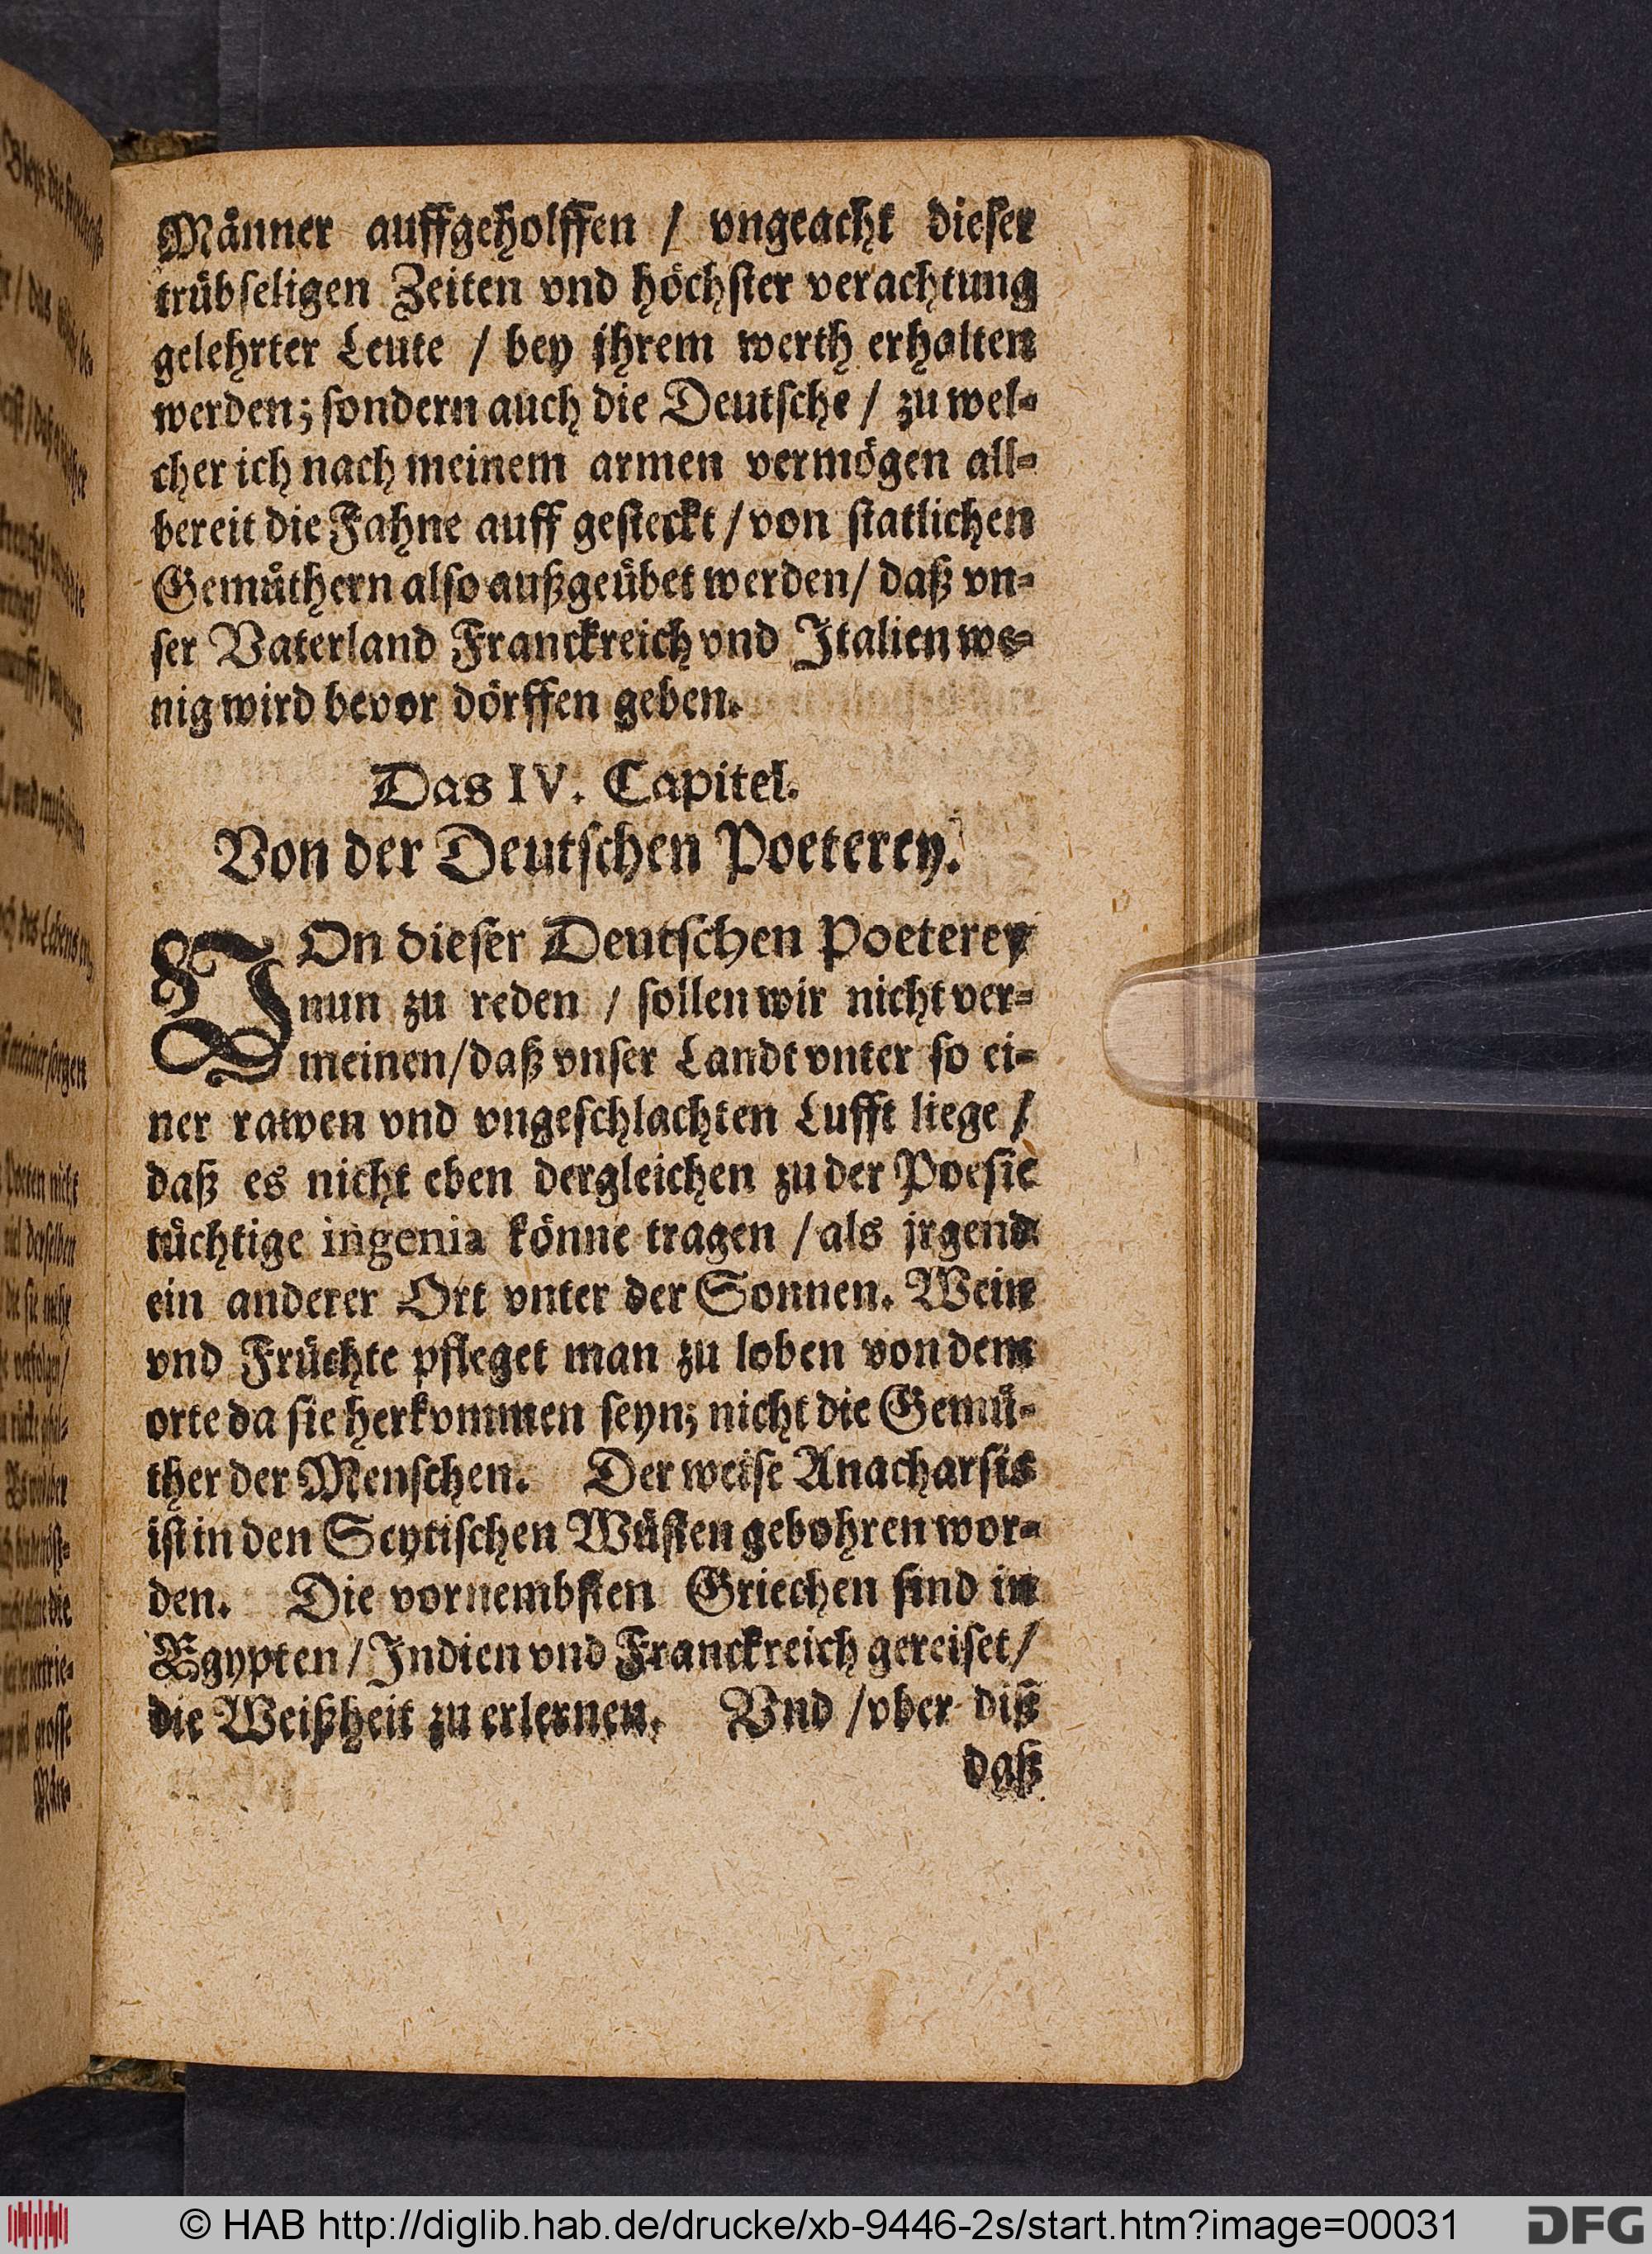 Männer auffgeholffen / vngeacht dieser
trübseligen Zeiten vnd höchster verachtung
gelehrter Leute / bey jhrem werth erhalten
werden; sondern auch die Deutsche / zu wel-
cher ich nach meinem armen vermögen all-
bereit die Fahne auff gesteckt / von statlichen
Gemüthern also außgeübet werden / daß vn-
ser Vaterland Franckreich vnd Italien we-
nig wird bevor dörffen geben.
Das IV. Capitel.
Von der Deutschen Poeterey.
VOn dieser Deutschen Poeterey
nun zu reden / sollen wir nicht ver-
meinen / daß vnser Landt vnter so ei-
ner rawen vnd vngeschlachten Lufft liege /
daß es nicht eben dergleichen zu der Poesie
tüchtige ingenia könne tragen / als jrgend
ein anderer Ort vnter der Sonnen. Wein
vnd Früchte pfleget man zu loben von dem
orte da sie herkommen seyn; nicht die Gemü-
ther der Menschen. Der weise Anacharsis
ist in den Scytischen Wüsten gebohren wor-
den. Die vornembsten Griechen sind in
Egypten / Indien vnd Franckreich gereiset /
die Weißheit zu erlernen. Vnd / vber diß
daß
© HAB http://diglib.hab.de/drucke/xb-9446-2s/start.htm?image=00031
DFG